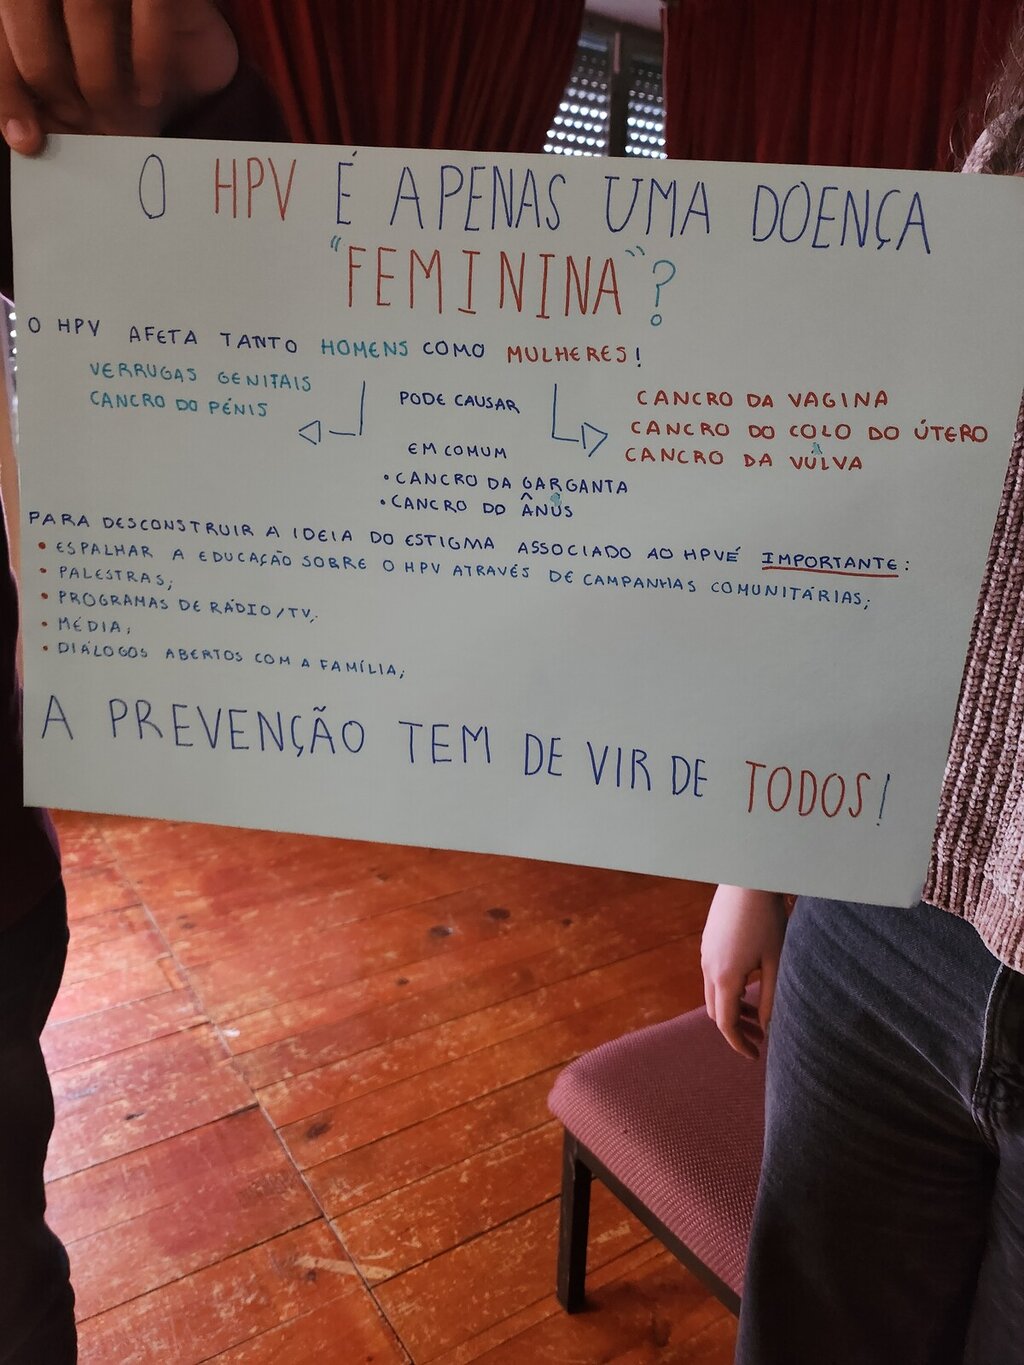 O HPV É APENAS UMA DOENÇA
"FEMININA"?
O HPV AFETA TANTO HOMENS COMO MULHERES!
VERRUGAS GENITAIS
CANCRO DO PÉNIS
PODE CAUSAR
CANCRO DA VAGINA
CANCRO DO COLO DO ÚTERO
CANCRO DA VULVA
EM COMUM
• CANCRO DA GARGANTA
• CANCRO DO ÂNUS
PARA DESCONSTRUIR A IDEIA DO ESTIGMA ASSOCIADO AO HPV É IMPORTANTE:
• ESPALHAR A EDUCAÇÃO SOBRE O HPV ATRAVÉS DE CAMPANHAS COMUNITÁRIAS;
• PALESTRAS;
• PROGRAMAS DE RÁDIO/TV;
• MÉDIA;
• DIÁLOGOS ABERTOS COM A FAMÍLIA;
A PREVENÇÃO TEM DE VIR DE TODOS!